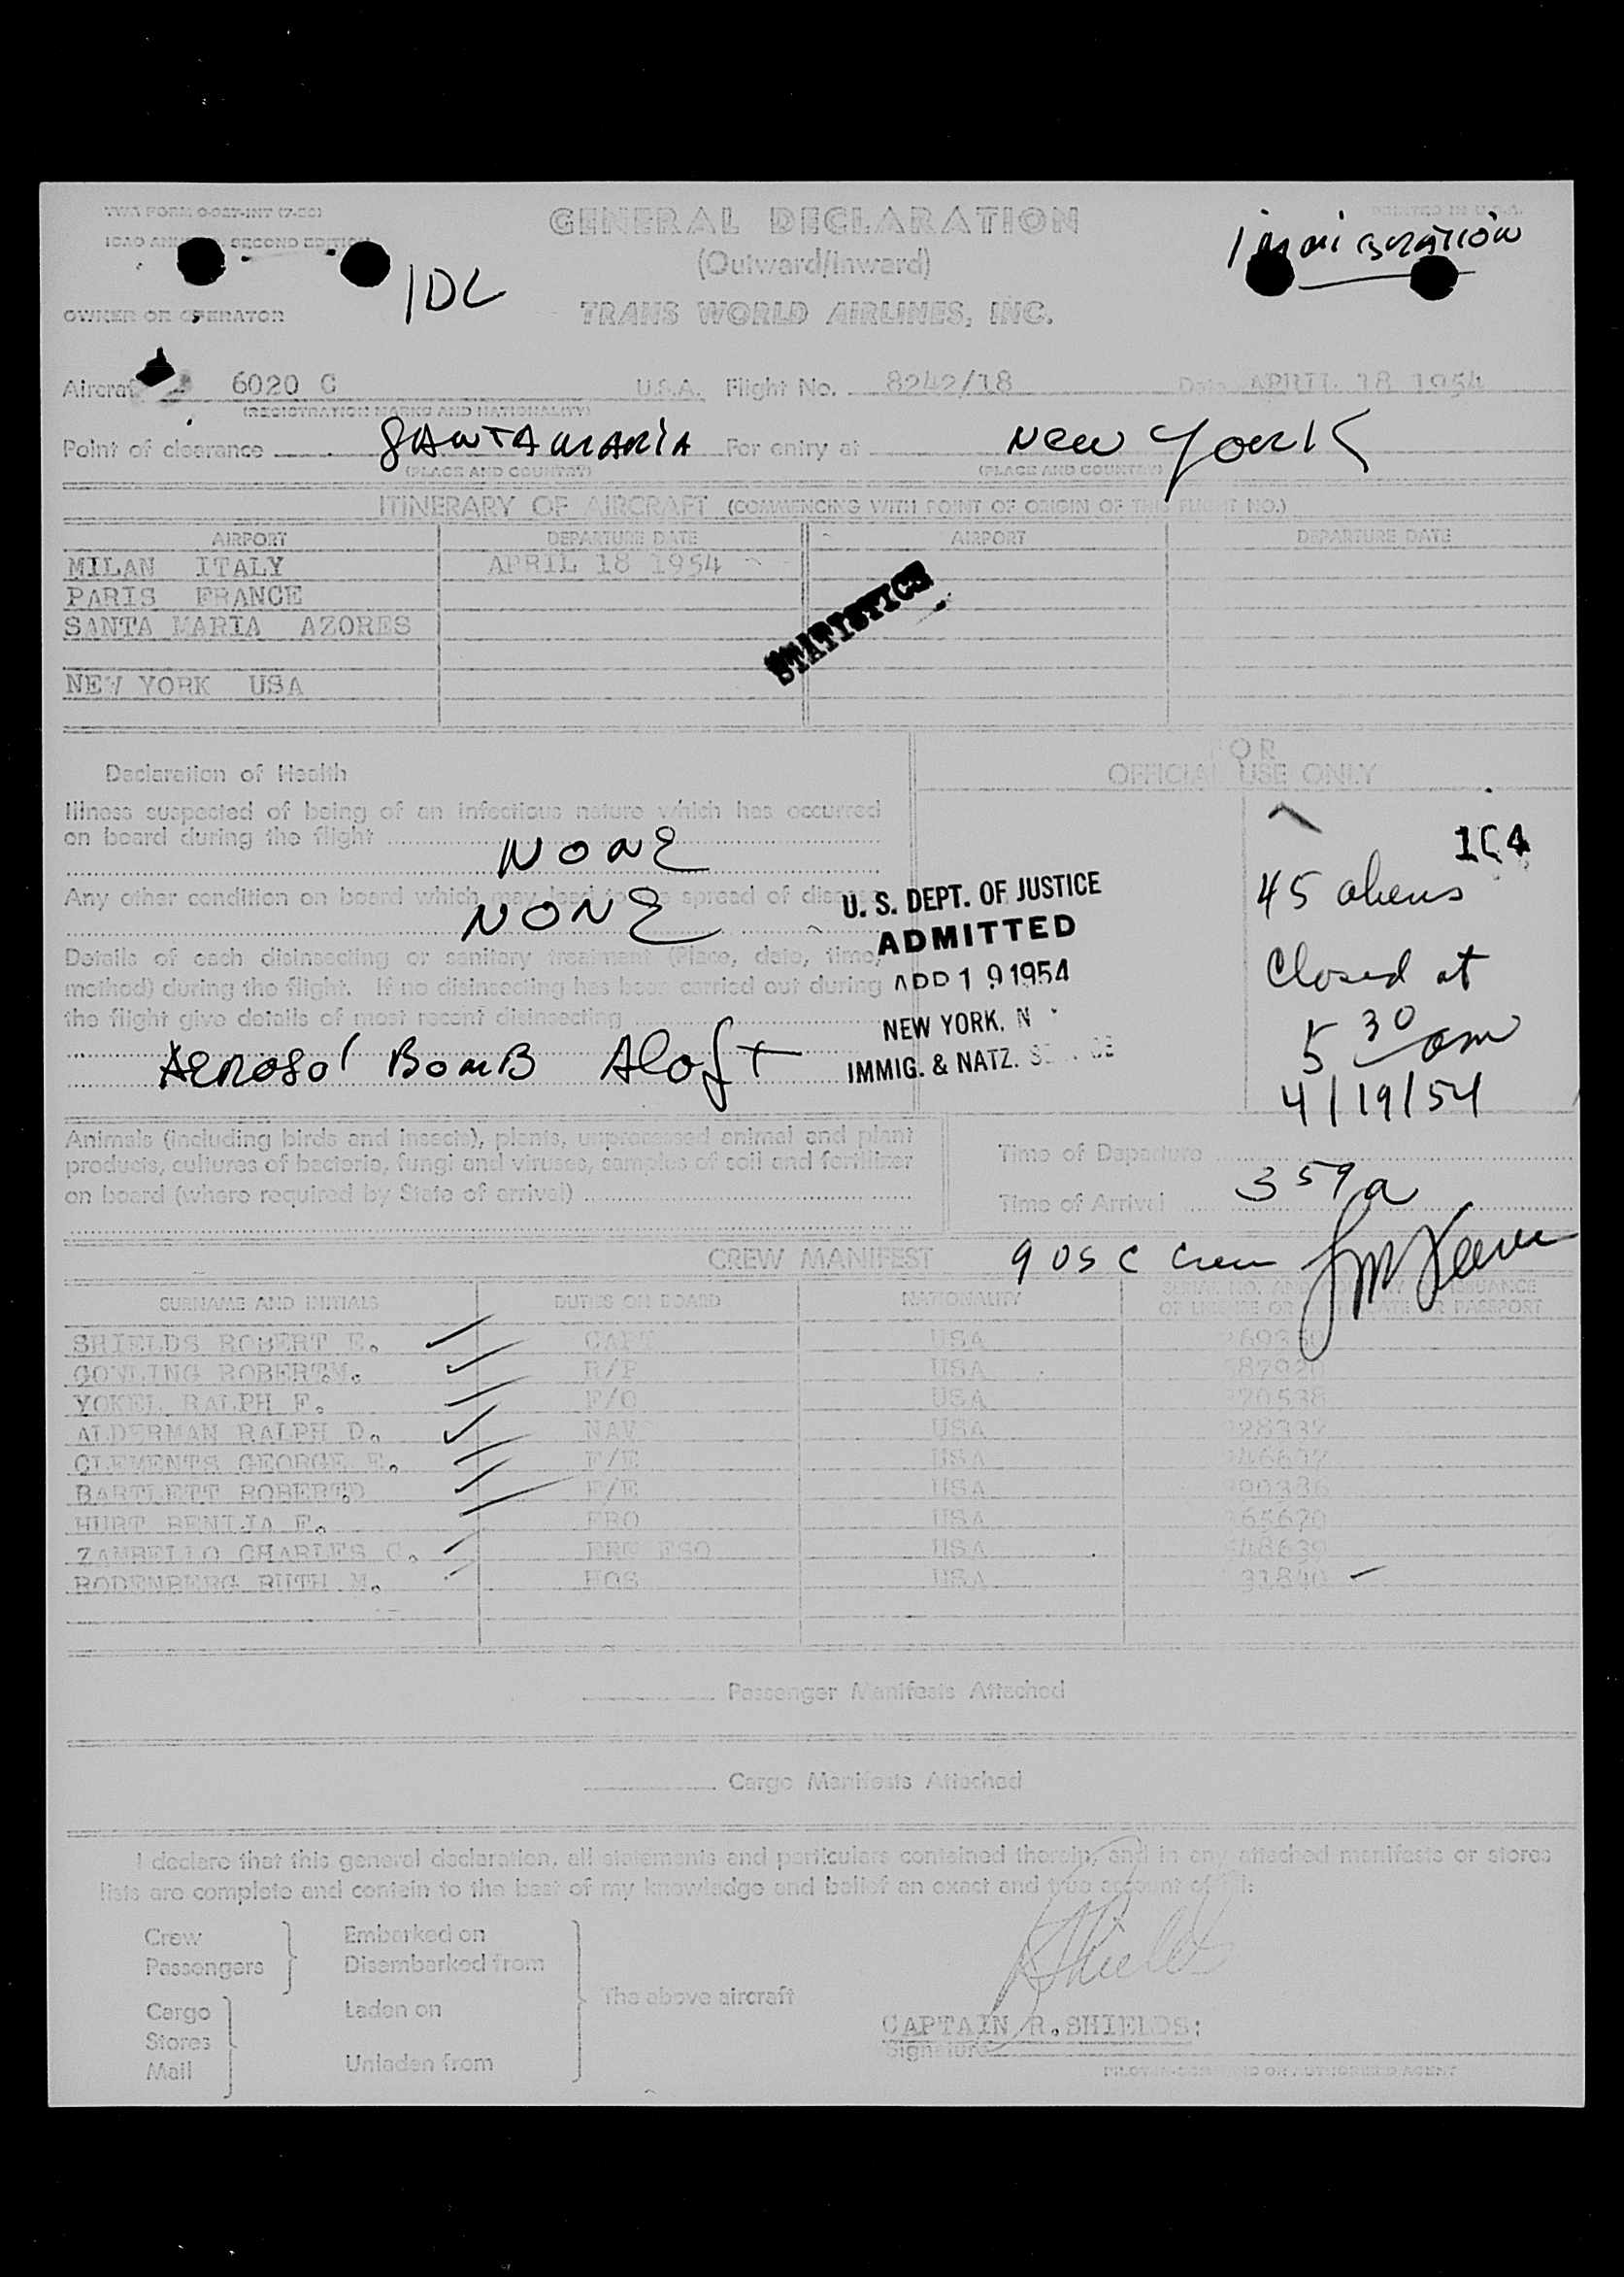 TWA FORM O-027-INT (7-50)
ICAO SECOND EDITION
PRINTED IN U.S.A.
GENERAL DECLARATION
Immigration
(Outward/Inward)
IDL
OWNER OR OPERATOR
TRANS WORLD AIRLINES, INC.
Aircraft 6020 C U.S.A. Flight No. 8242/18 Date APRIL 18 1954
(REGISTRATION MARKS AND NATIONALITY)
Point of clearance SANTA MARIA For entry at New York
(PLACE AND COUNTRY) (PLACE AND COUNTRY)
ITINERARY OF AIRCRAFT (COMMENCING WITH POINT OF ORIGIN OF THIS FLIGHT NO.)
AIRPORT DEPARTURE DATE AIRPORT DEPARTURE DATE
MILAN ITALY APRIL 18 1954
PARIS FRANCE
SANTA MARIA AZORES
STATISTICS
NEW YORK USA
FOR
OFFICIAL USE ONLY
Declaration of Health
Illness suspected of being of an infectious nature which has occurred
on board during the flight
NONE
Any other condition on board which may lead to the spread of disease
NONE
Details of each disinsecting or sanitary treatment (Place, date, time,
method) during the flight. If no disinsecting has been carried out during
the flight give details of most recent disinsecting
Aerosol Bomb Aloft
U. S. DEPT. OF JUSTICE
ADMITTED
19 1954
NEW YORK, N
IMMIG. & NATZ.
45 aliens
Closed at
5 30 am
4/19/54
Animals (including birds and insects), plants, unprocessed animal and plant
products, cultures of bacteria, fungi and viruses, samples of soil and fertilizer
on board (where required by State of arrival)
Time of Departure
Time of Arrival 3 59 a
CREW MANIFEST 9 USC Crew
SURNAME AND INITIALS DUTIES ON BOARD NATIONALITY SERIAL NO. ISSUANCE
OF LICENSE OR PASSPORT
SHIELDS ROBERT E. CAPT USA
GOWLING ROBERT USA
YOKEL RALPH F. F/O USA
ALDERMAN RALPH D. NAV USA
CLEMENTS GEORGE F/E USA
BARTLETT ROBERT F/E USA
HURT F. FRO USA
ZAMBELLO CHARLES C. USA
RODENBERG RUTH M. HOS USA
Passenger Manifests Attached
Cargo Manifests Attached
I declare that this general declaration, all statements and particulars contained therein, and in any attached manifests or stores
lists are complete and contain to the best of my knowledge and belief an exact and true account of all:
Crew
Passengers
Embarked on
Disembarked from
Cargo
Stores
Mail
Laden on
Unladen from
The above aircraft
R Shields
CAPTAIN R. SHIELDS:
Signature
PILOT-IN-COMMAND OR AUTHORIZED AGENT